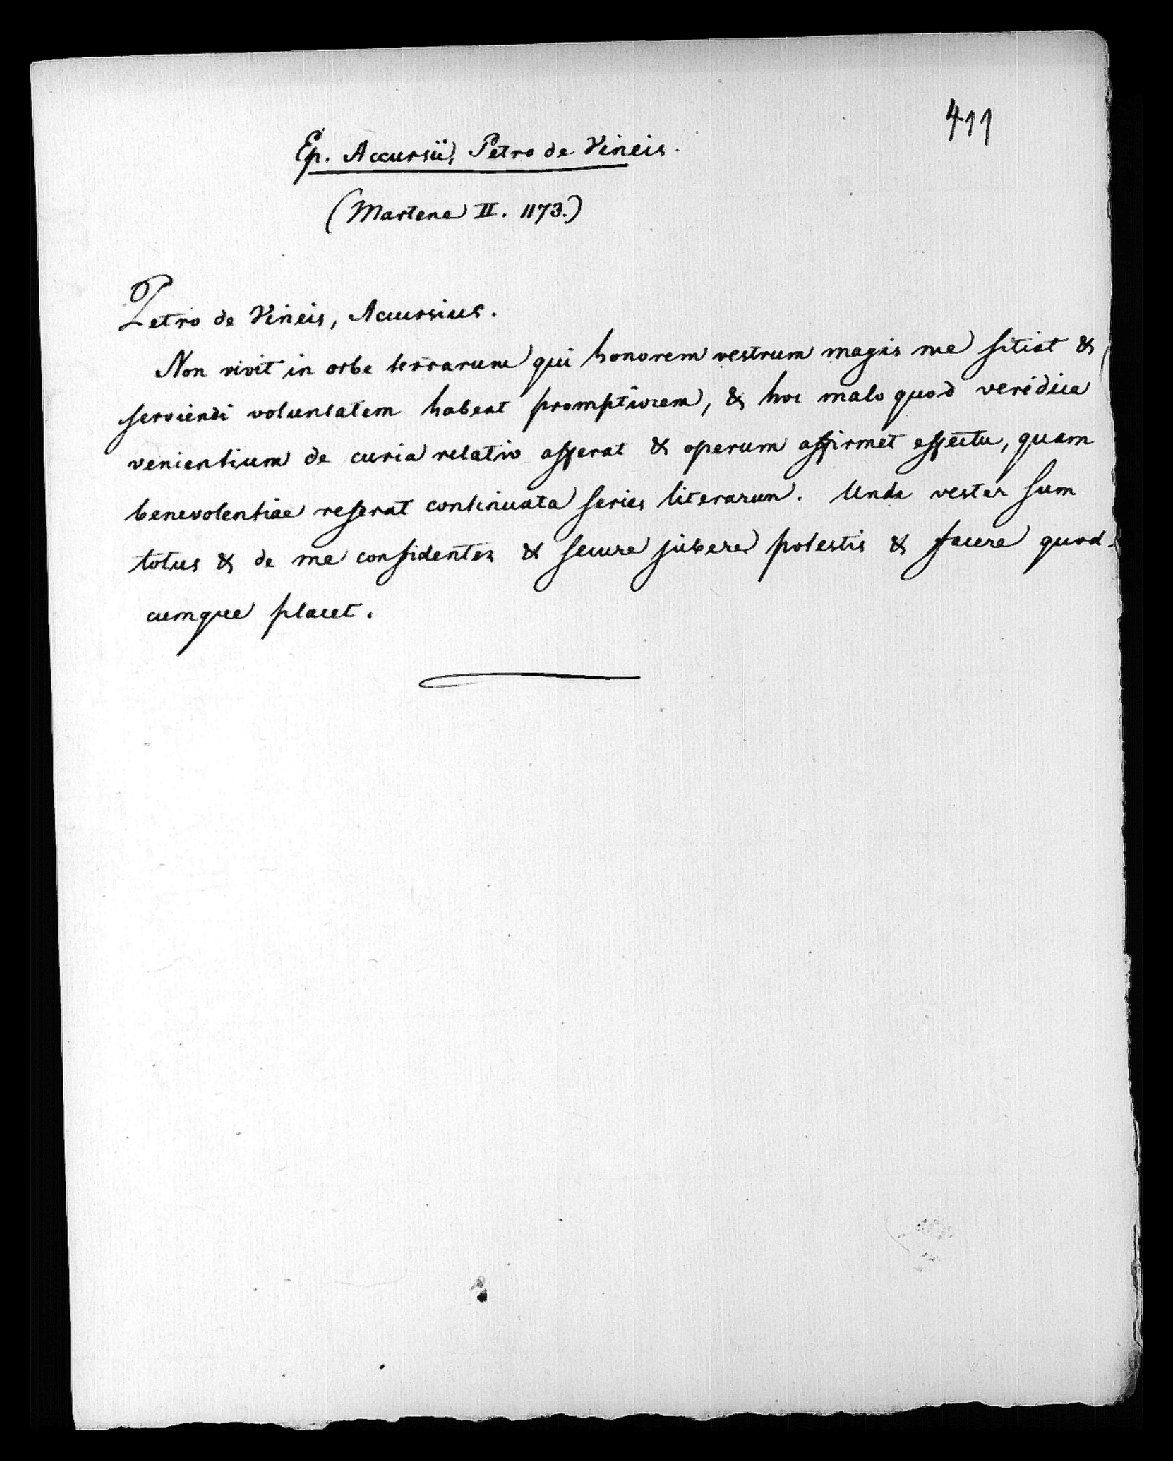 411
Ep. Accursii, Petro de Vineis.
(Martene II. 1173.)
Petro de Vineis, Accursius.
Non vivit in orbe terrarum qui honorem vestrum magis me sitiat &
serviendi voluntatem habeat promptiorem, & hoc malo quod veridica
venientium de curia relatio asserat & operum affirmet effectu, quam
benevolentiae referat continuata series literarum. Unde vester sum
totus & de me confidenter & secure jubere potestis & facere quod-
cumque placet.